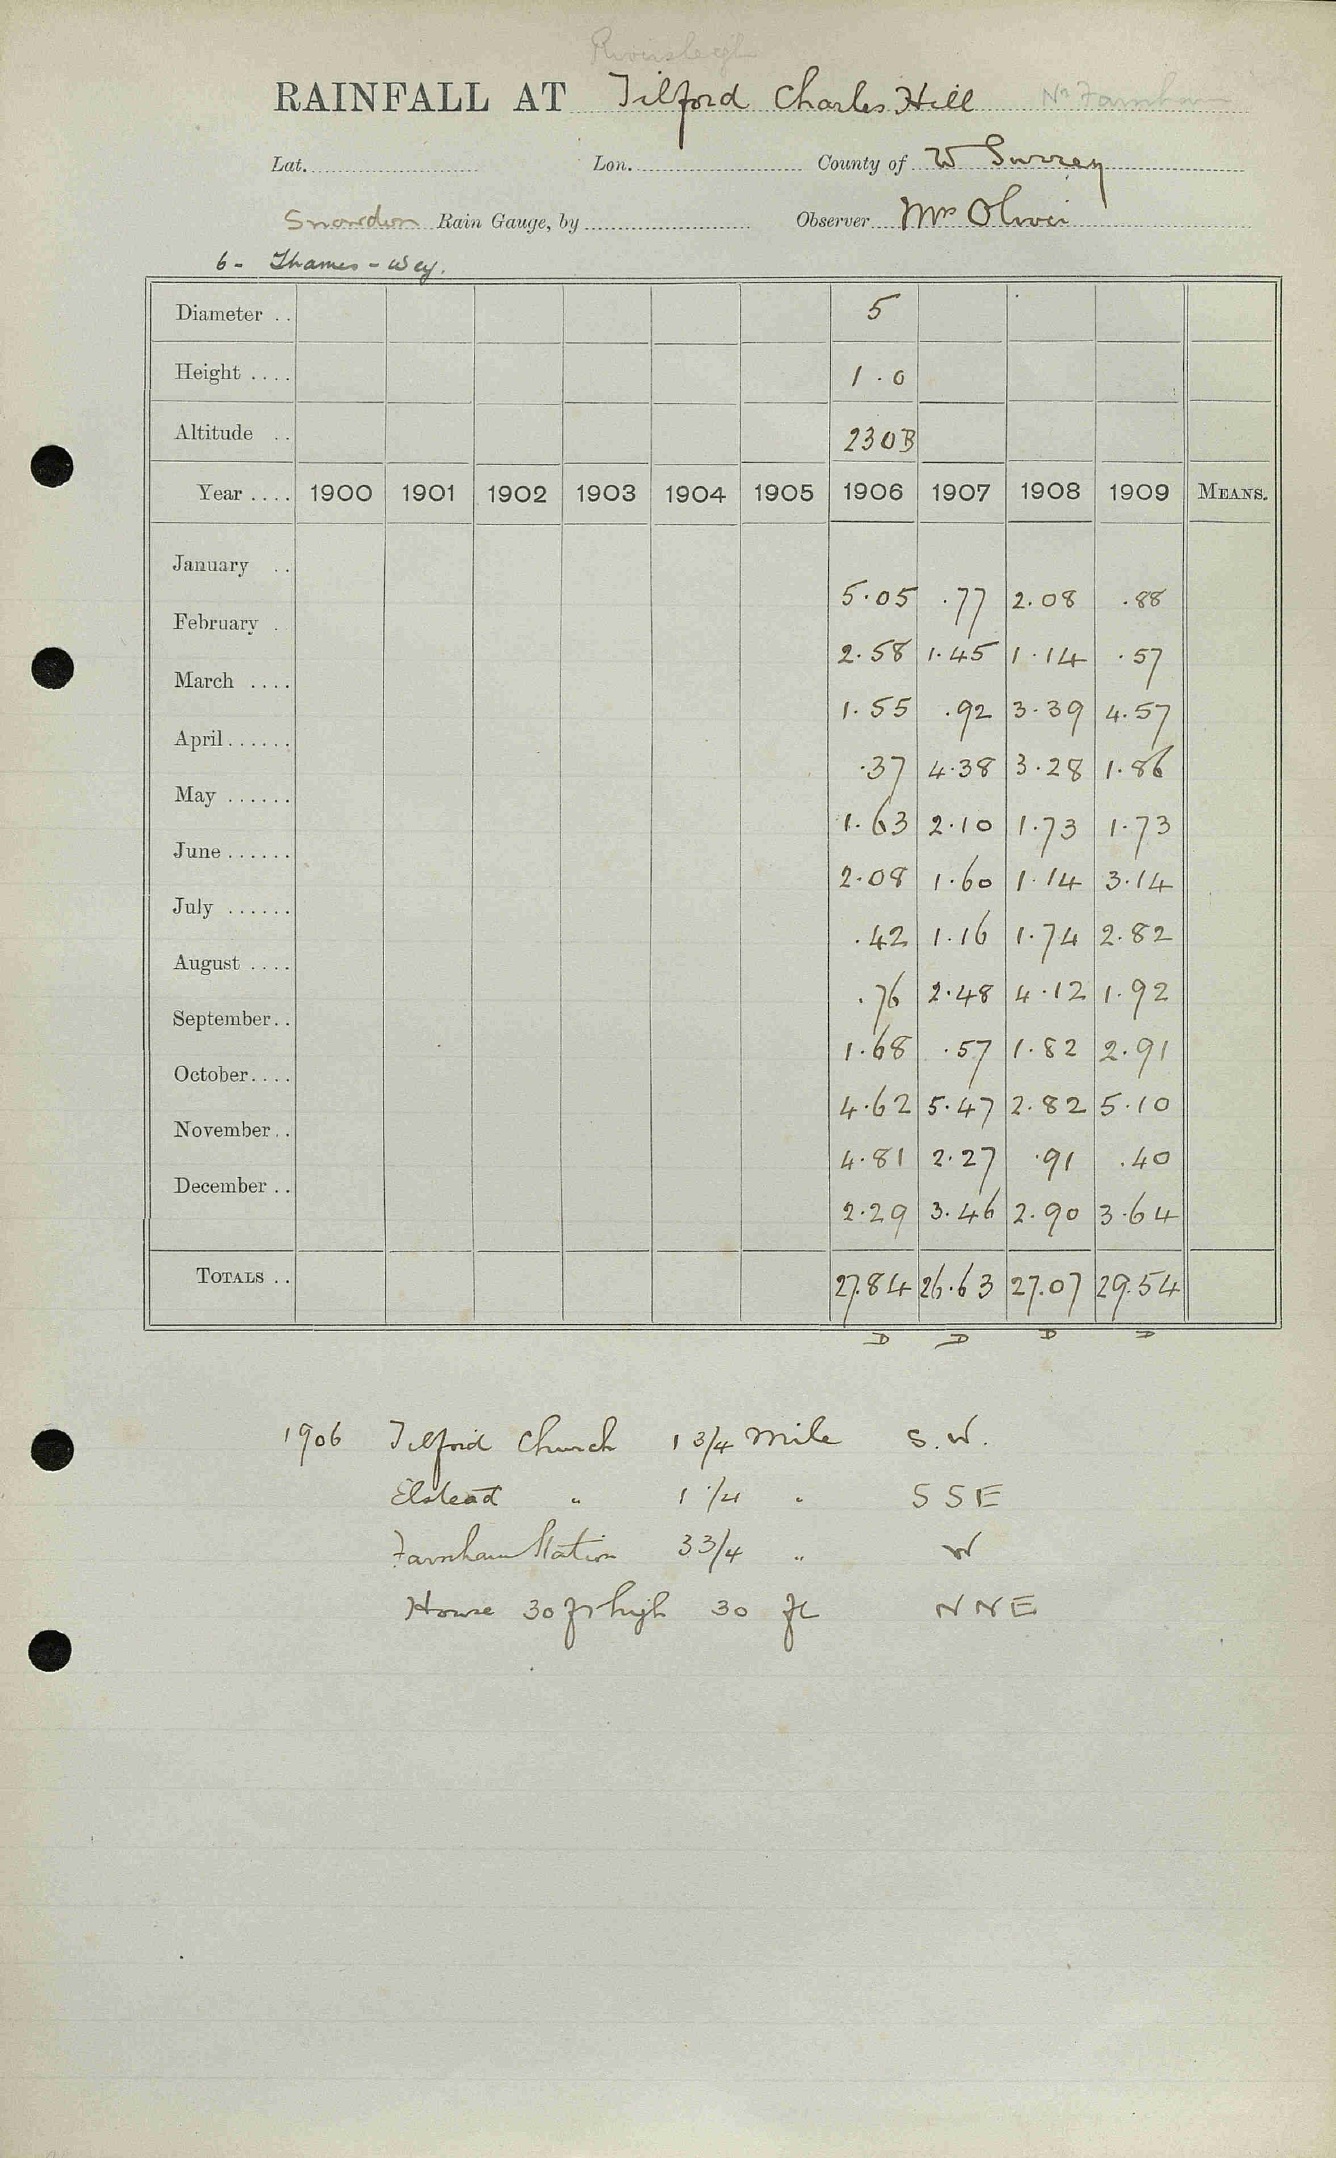 RAINFALL AT Tilford Charles Hill Nr Farnham
Lat. Lon. County of W Surrey
Snowdon Rain Gauge, by Observer Mrs Olivei
6 - Thames - Wey.
Diameter .. 5
Height .... 1.0
Altitude .. 230B
Year .... 1900 1901 1902 1903 1904 1905 1906 1907 1908 1909 MEANS.
January .. 5.05 .77 2.08 .88
February . 2.58 1.45 1.14 .57
March .... 1.55 .92 3.39 4.57
April ...... .37 4.38 3.28 1.86
May ...... 1.63 2.10 1.73 1.73
June ...... 2.08 1.60 1.14 3.14
July ...... .42 1.16 1.74 2.82
August .... .76 2.48 4.12 1.92
September.. 1.68 .57 1.82 2.91
October.... 4.62 5.47 2.82 5.10
November.. 4.81 2.27 .91 .40
December .. 2.29 3.46 2.90 3.64
TOTALS .. 27.84 26.63 27.07 29.54
D D D D
1906 Tilford Church 1 3/4 Mile S.W.
Elstead " 1 1/4 " S S E
Farnham Station 3 3/4 " W
House 30 ft high 30 ft N N E